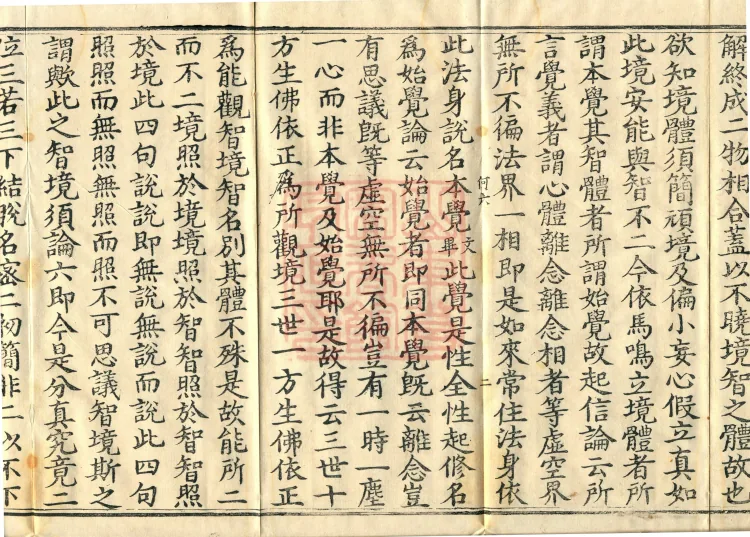 解終成二物相合蓋以不曉境智之體故也
欲知境體須簡頑境及偏小妄心假立真如
此境安能與智不二今依馬鳴立境體者所
謂本覺其智體者所謂始覺故起信論云所
言覺義者謂心體離念離念相者等虛空界
無所不徧法界一相即是如來常住法身依
何六 二
此法身說名本覺文畢此覺是性全性起修名
爲始覺論云始覺者即同本覺旣云離念豈
有思議旣等虛空無所不徧豈有一時一塵
一心而非本覺及始覺耶是故得云三世十
方生佛依正爲所觀境三世一方生佛依正
爲能觀智境智名別其體不殊是故能所二
而不二境照於境境照於智智照於智智照
於境此四句說說即無說無說而說此四句
照照而無照無照而照不可思議智境斯之
謂歟此之智境須論六即今是分真究竟二
位三若三下結脫名密二初簡非二以不下